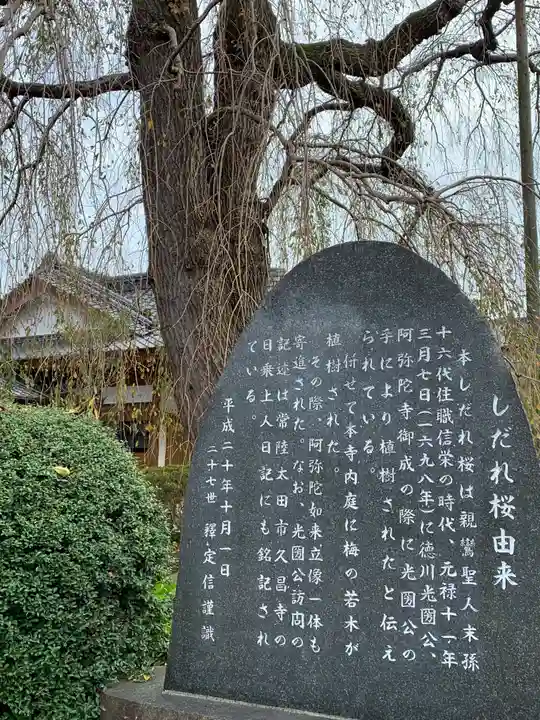 しだれ桜由来
本しだれ桜は親鸞聖人末孫
十六代住職信栄の時代、元禄十一年
三月七日(一六九八年)に徳川光圀公、
阿弥陀寺御成の際に光圀公の
手により植樹されたと伝え
られている。
付せて本寺内庭に梅の若木が
植樹された。
その際、阿弥陀如来立像一体も
寄進された。なお、光圀公訪問の
記述は常陸太田市久昌寺の
日乗上人日記にも銘記され
ている。
平成二十年十月一日
二十七世 釋定信謹識